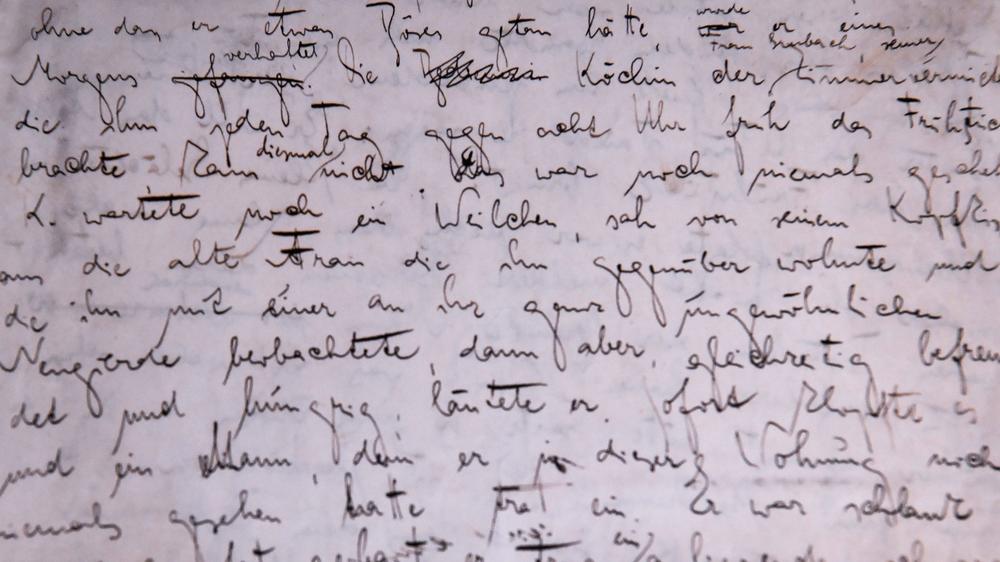 ohne dass er etwas Böses getan hätte, wurde er eines
Morgens gefangen. verhaftet Die Köchin der Zimmervermiet
Frau Grubach, seiner
die ihm jeden Tag gegen acht Uhr früh das Frühstü
brachte kam diesmal nicht. Das war noch niemals gesche
K. wartete noch ein Weilchen, sah von seinem Kopfkis
aus die alte Frau die ihm gegenüber wohnte und
die ihn mit einer an ihr ganz ungewöhnlichen
Neugierde beobachtete, dann aber, gleichzeitig befrem
det und hungrig, läutete er. Sofort klopfte es
und ein Mann, den er in dieser Wohnung noch
niemals gesehen hatte trat ein. Er war schlank